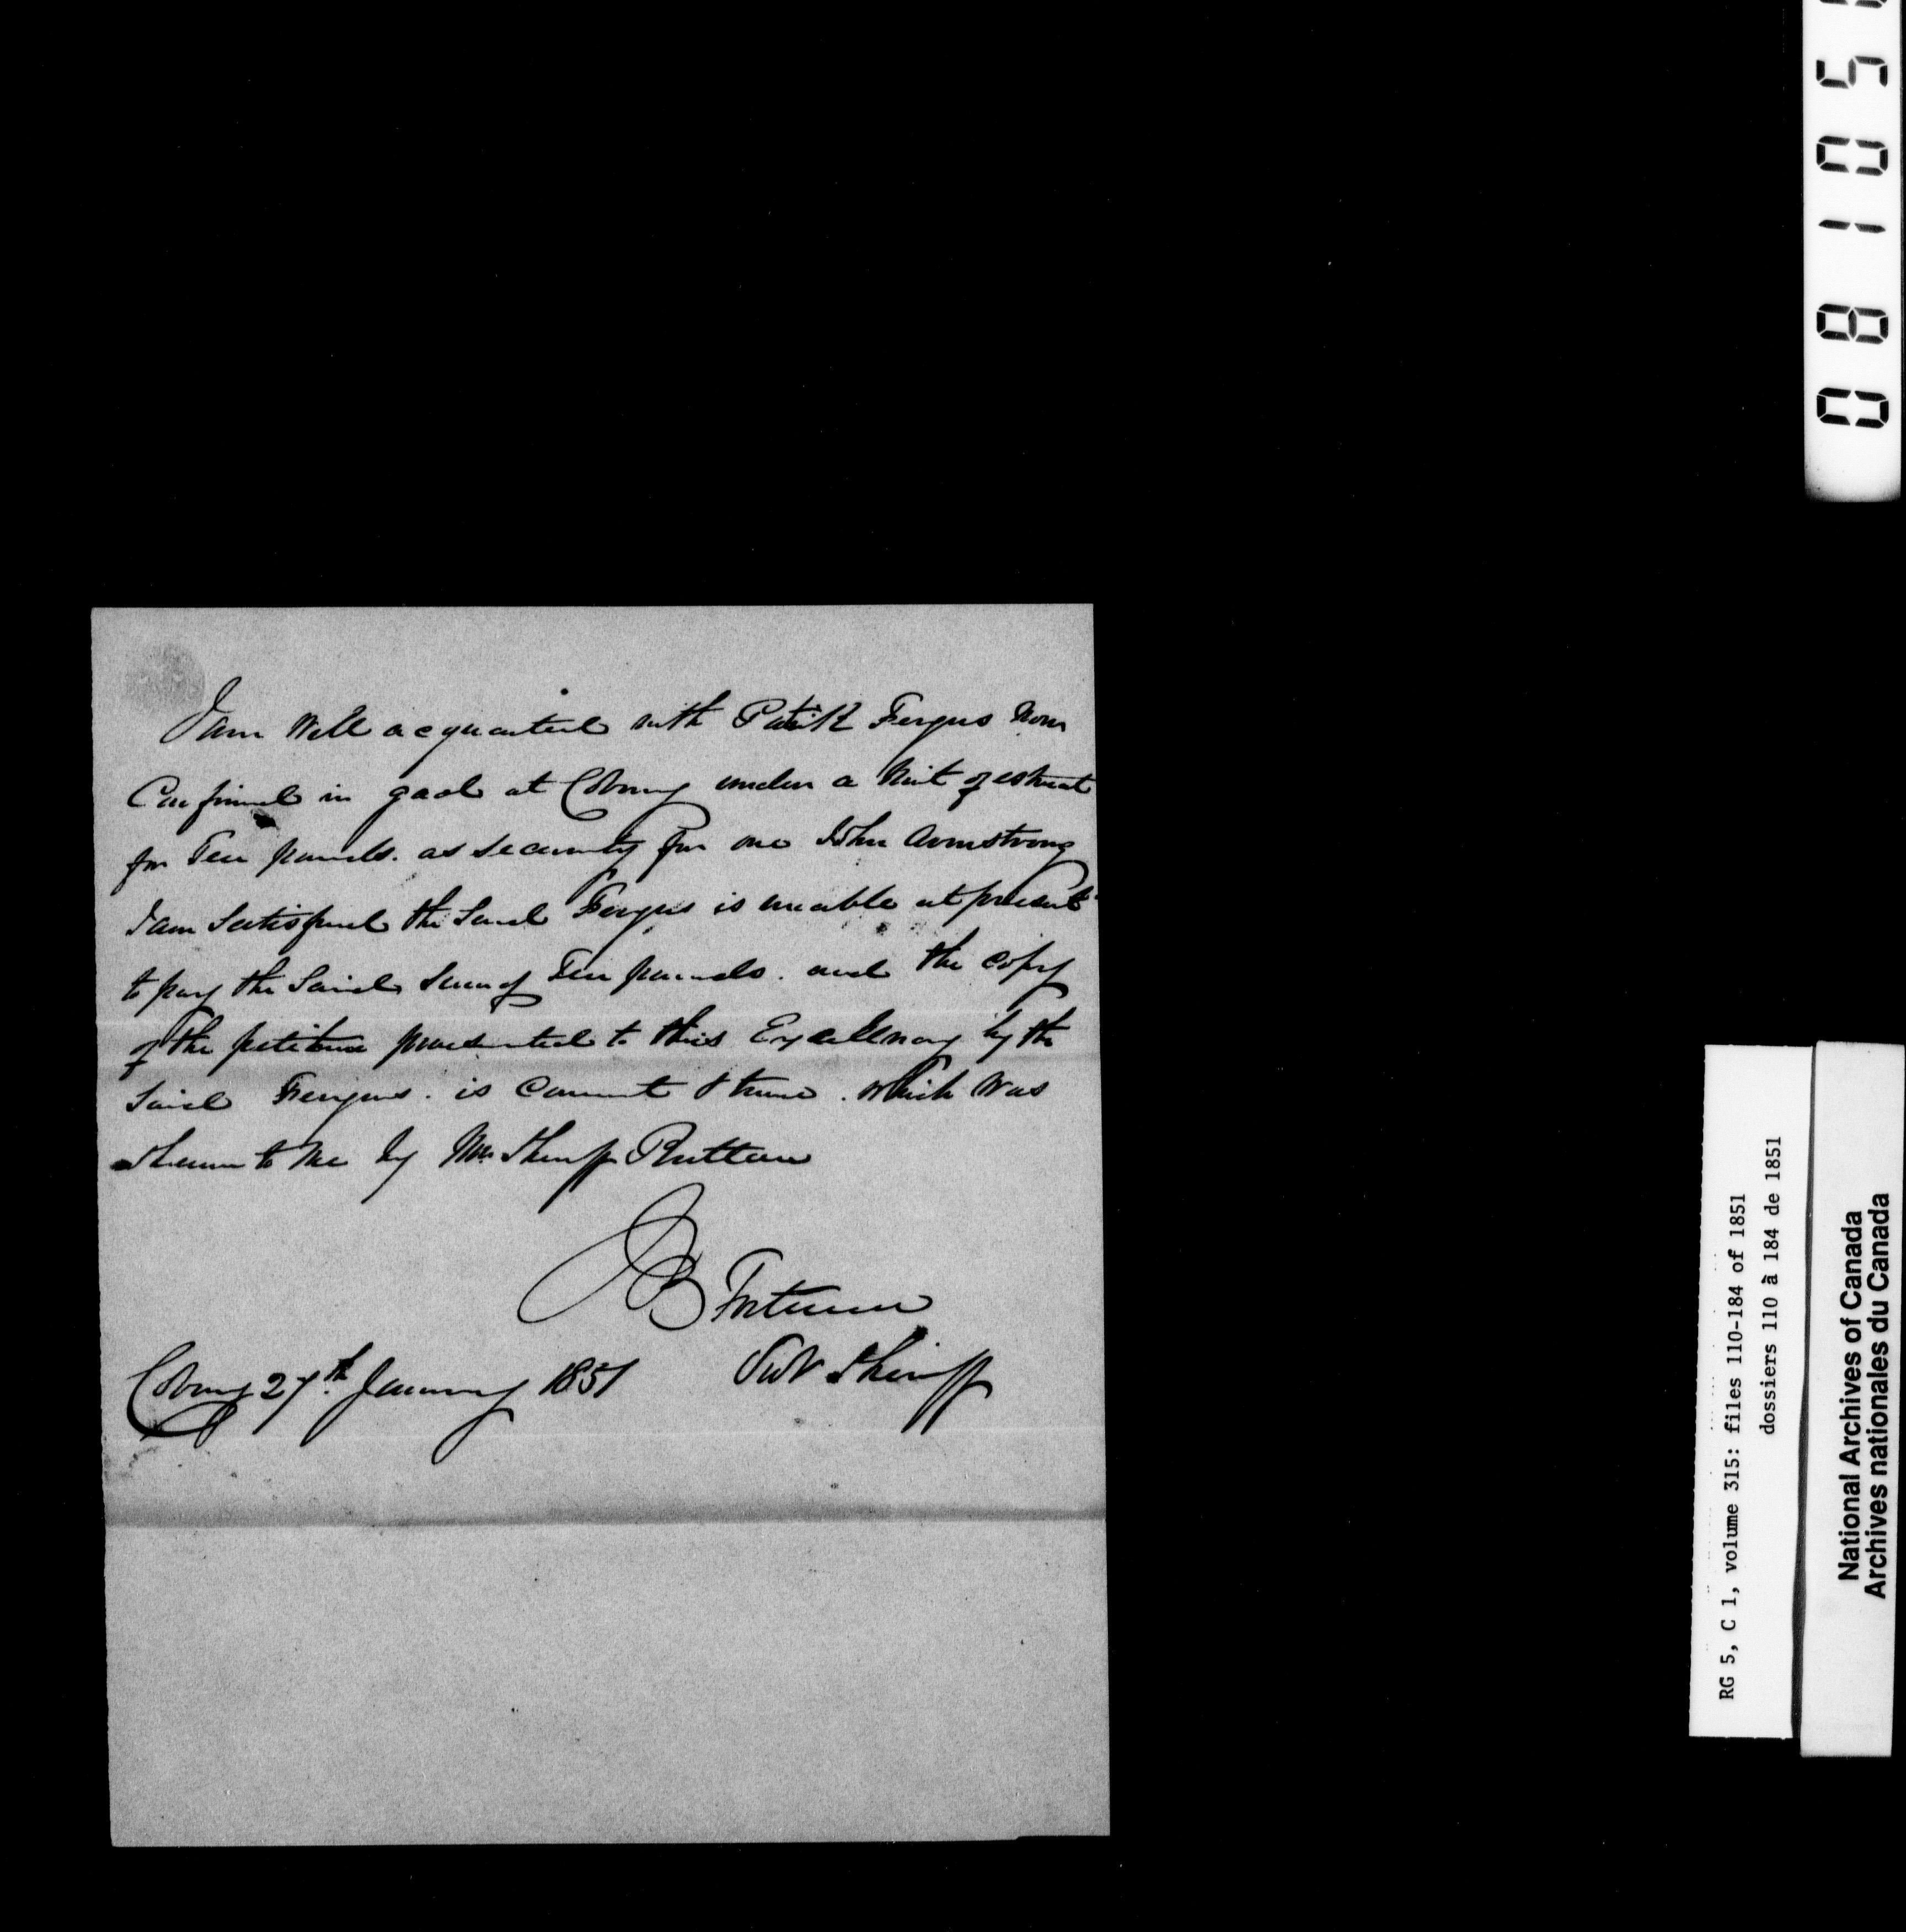 I am Well acquainted with Patrick Fergus now
Confined in gaol at Cobourg under a Writ of estreat
for Ten pounds. as security for one John Armstrong
I am Satisfied the Said Fergus is unable at present
to pay the Said Sum of Ten pounds. and the copy
of the petition presented to this Excellency by the
Said Fergus. is Correct & true. which was
shewn to me by Mr. Sheriff Ruttan
JB Fortune
Cobourg 27th. January 1851
Sheriff
08105
RG 5, C 1, volume 315: files 110-184 of 1851
dossiers 110 à 184 de 1851
National Archives of Canada
Archives nationales du Canada